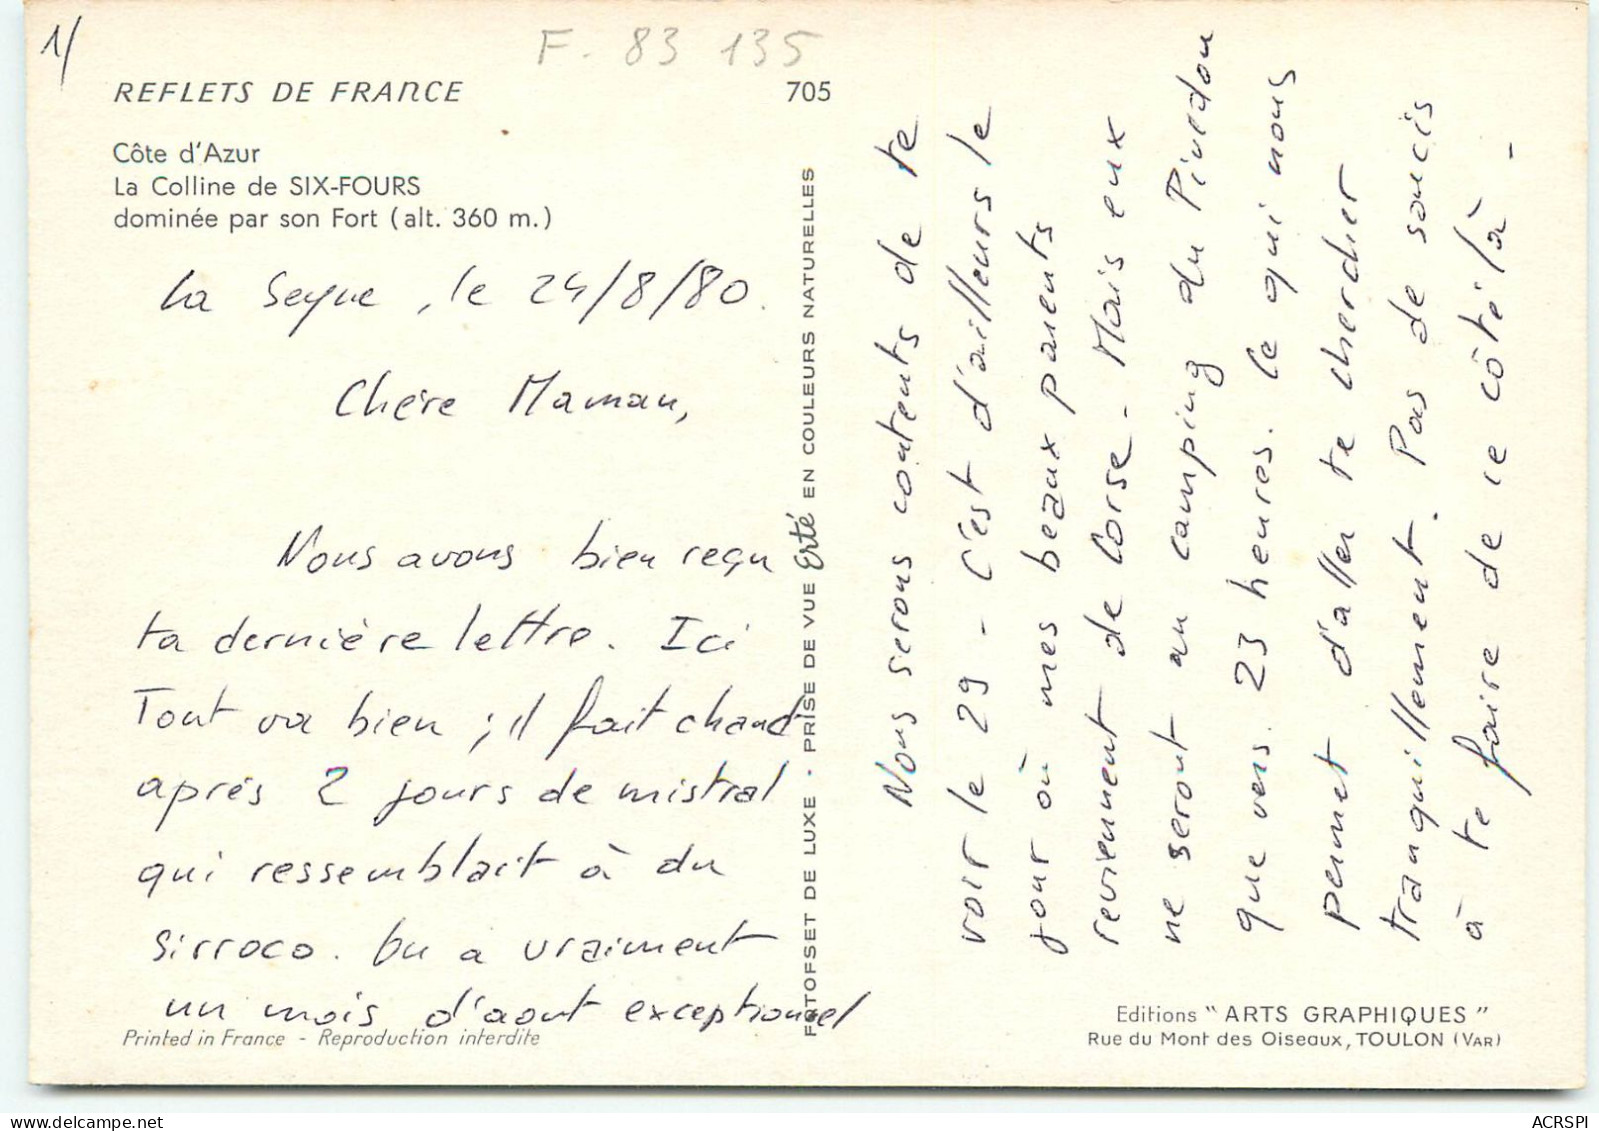 1/
F. 83 135
REFLETS DE FRANCE
705
Côte d'Azur
La Colline de SIX-FOURS
dominée par son Fort (alt. 360 m.)
La Seyne, le 24/8/80.
Chère Maman,
Nous avons bien reçu
ta dernière lettre. Ici
Tout va bien ; il fait chaud
après 2 jours de mistral
qui ressemblait à du
sirroco. On a vraiment
un mois d'aout exceptionnel
Printed in France - Reproduction interdite
FOTOFSET DE LUXE - PRISE DE VUE Erté EN COULEURS NATURELLES
Nous serons contents de te
voir le 29 - C'est d'ailleurs le
jour où mes beaux parents
reviennent de Corse - Mais eux
ne seront au camping du Pivedou
que vers 23 heures. Ce qui nous
permet d'aller te chercher
tranquillement. Pas de soucis
à te faire de ce côté là -
Editions "ARTS GRAPHIQUES"
Rue du Mont des Oiseaux, TOULON (VAR)
ACRSPI